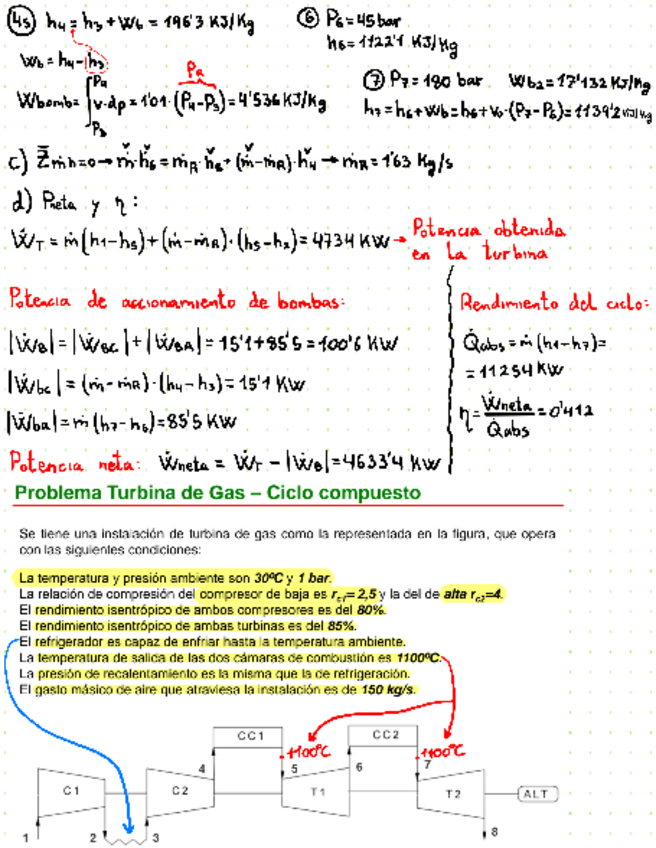 4s h₄ = h₃ + Wb = 196'3 KJ/Kg
Wb = h₄ - h₃
Wbomb = ∫ v·dp = 1'01 · (P₄ - P₃) = 4'536 KJ/Kg
P₄
P₃
Pa
6 P₆ = 45 bar
h₆ = 1122'1 KJ/Kg
7 P₇ = 180 bar Wb₂ = 17'132 KJ/Kg
h₇ = h₆ + Wb = h₆ + v₆ · (P₇ - P₆) = 1139'2 KJ/Kg
c) Σ ṁh = 0 → ṁ·h₆ = ṁR·h₈ + (ṁ - ṁR)·h₄ → ṁR = 1'63 Kg/s
d) Pneta y η :
ẆT = ṁ (h₁ - h₅) + (ṁ - ṁR) · (h₅ - h₂) = 4734 KW → Potencia obtenida
en la turbina
Potencia de accionamiento de bombas:
|ẆB| = |ẆBC| + |ẆBA| = 15'1 + 85'5 = 100'6 KW
|Ẇbc| = (ṁ - ṁR) · (h₄ - h₃) = 15'1 KW
|Ẇba| = ṁ (h₇ - h₆) = 85'5 KW
Potencia neta: Ẇneta = ẆT - |ẆB| = 4633'4 KW
Rendimiento del ciclo:
Q̇abs = ṁ (h₁ - h₇) =
= 11254 KW
η = Ẇneta / Q̇abs = 0'412
Problema Turbina de Gas – Ciclo compuesto
Se tiene una instalación de turbina de gas como la representada en la figura, que opera
con las siguientes condiciones:
La temperatura y presión ambiente son 30ºC y 1 bar.
La relación de compresión del compresor de baja es rc1= 2,5 y la del de alta rc2=4.
El rendimiento isentrópico de ambos compresores es del 80%.
El rendimiento isentrópico de ambas turbinas es del 85%.
El refrigerador es capaz de enfriar hasta la temperatura ambiente.
La temperatura de salida de las dos cámaras de combustión es 1100ºC.
La presión de recalentamiento es la misma que la de refrigeración.
El gasto másico de aire que atraviesa la instalación es de 150 kg/s.
CC1 CC2
1100ºC 1100ºC
4 5 6 7
C1 C2 T1 T2 ALT
1 2 3 8